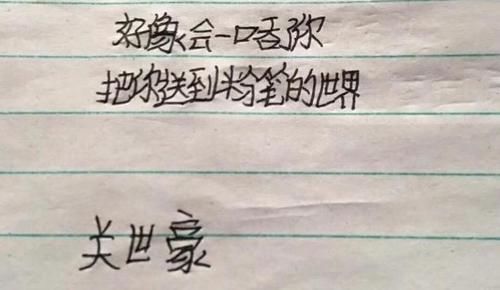 好像会一口吞你
把你送到粉笔的世界
关世豪